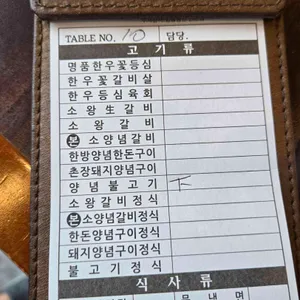 TABLE NO. 10 담당.
고 기 류
명품한우꽃등심
한우꽃갈비살
한우등심육회
소왕生갈비
소 왕 갈 비
본 소양념갈비
한방양념한돈구이
촌장돼지양념구이
양념불고기 下
본 소양념갈비정식
한돈양념구이정식
돼지양념구이정식
불고기정식
식 사 류
물 냉 면